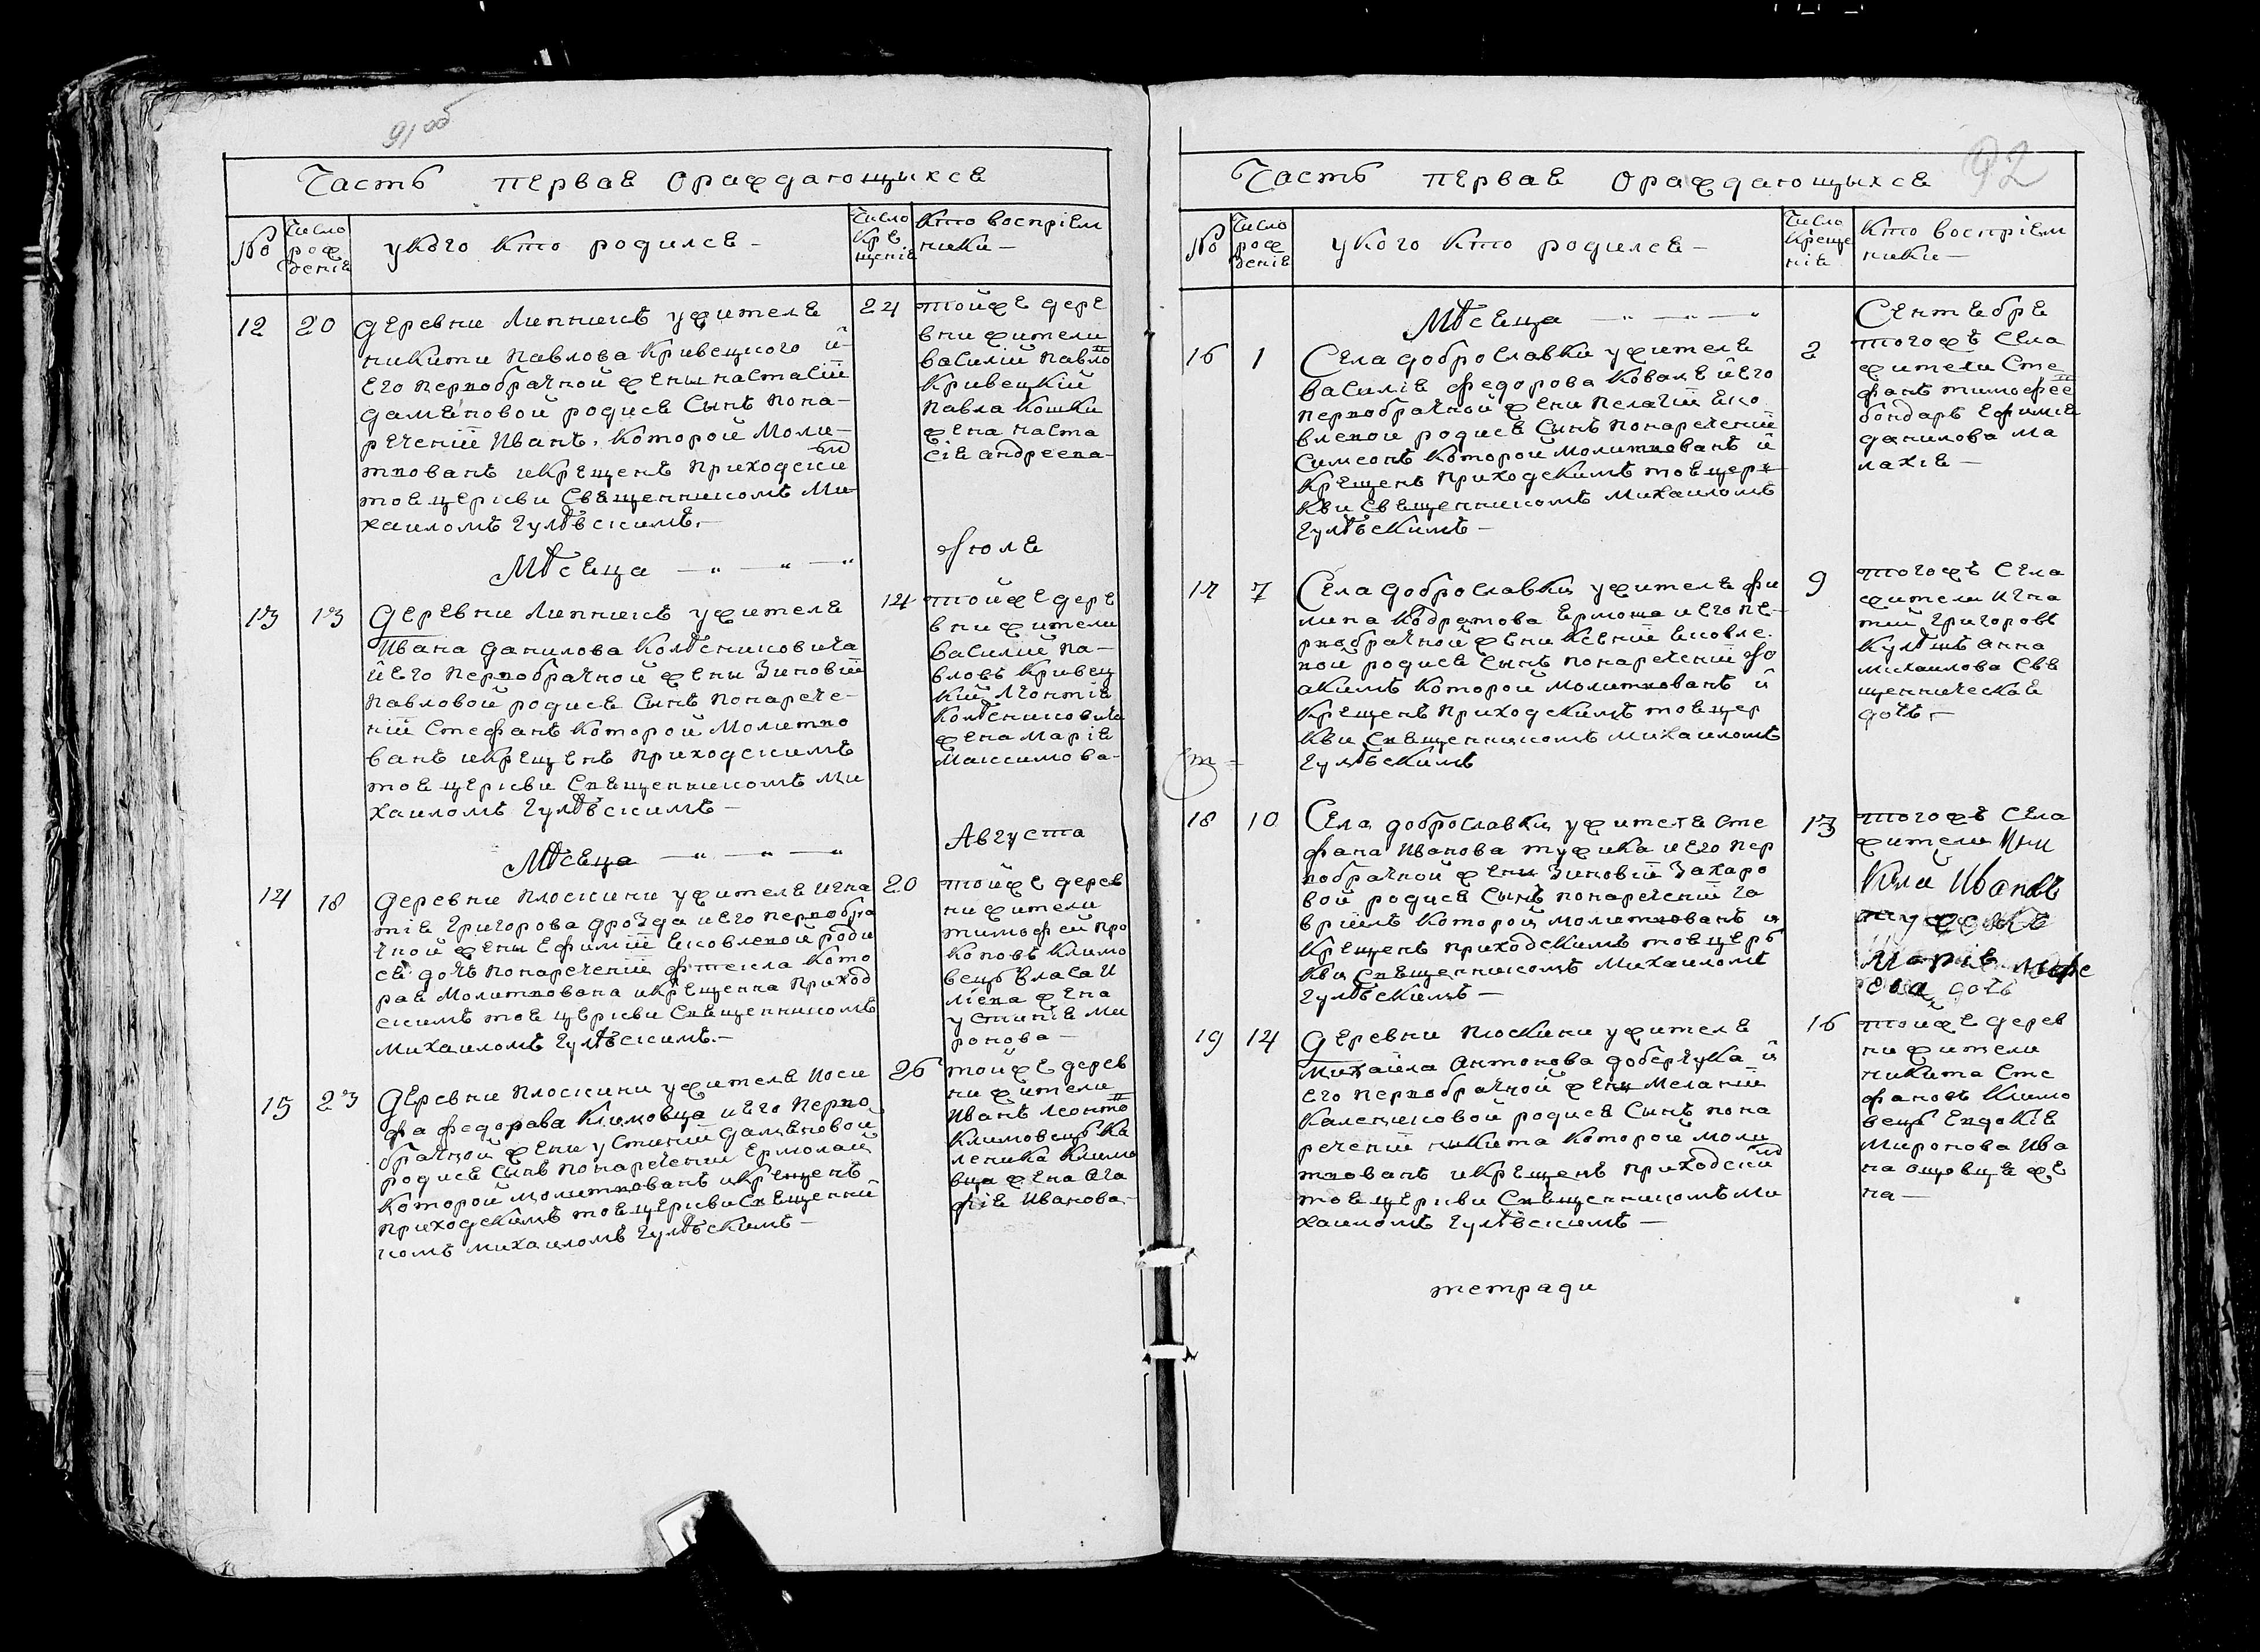 91 об
Часть первая о раждающыхся
№
Число рождения
у кого кто родился —
Число крещения
Кто восприемники —
12 20 24
Деревни Липникъ ужителя
Никити Павлова Кривецкого и
его первобрачной жены Настасіи
Дамяновой родися сынъ пона-
реченій Иванъ, которой моли-
твованъ и крещенъ приходским
тоя церкви священникомъ Ми-
хаиломъ Гулѣвскимъ.—
тойже дере
вни жители
Василій Павло
Кривецкій
Павла Кошки
жена Наста
сія Андреева-
Мѣсяца — " — " — " Июля
13 13 14
Деревни Липникъ ужителя
Ивана Данилова Колѣсниковича
и его первобрачной жени Зиновіи
Павловой родися сынъ понарече-
ній Стефанъ которой молитво
ванъ и крещенъ приходскимъ
тоя церкви священникомъ Ми
хаиломъ Гулѣвскимъ —
тойже дере
вни жители
Василий Па-
вловъ Кривец
кий Леонтія
Колѣсниковича
жена Марія
Максимова-
Мѣсяца — " — " — " Августа
14 18 20
Деревни Плоскини ужителя Игна
тія Григорова Дрозда и его первобра
чной жены Ефиміи Яковлевой роди
ся дочъ понареченій Фтекла кото
рая молитвована и крещенна приход
скимъ тоя церкви священникомъ
Михаиломъ Гулѣвскимъ.—
тойже дерев
ни жители
Тимофей Про
коповъ Климо
вецъ Власа И
ліева жена
Устинія Ми
ронова —
15 23 26
Деревни Плоскини ужителя Иоси
фа Федорава Климовца и его перво
брачной жени Устиніи Дамяновой
родися сынъ понаречении Ермолай
которой молитвованъ и крещенъ
приходскимъ тоя церкви священни
комъ Михаиломъ Гулѣвскимъ —
тойже дерев
ни жители
Иванъ Леонто
Климовецъ Ка
леника Климо
вца жена Ага
фія Иванова-
92
Часть первая о раждающыхся
№
Число рождения
у кого кто родился —
Число крещения
Кто восприемники —
Мѣсяца — " — " — " Сентября
16 1 2
Села Доброславки ужителя
Василія Федорова Коваля и его
первобрачной жени Пелагіи Яко
влевои родися сынъ понареченій
Симеонъ которой молитвованъ и
крещенъ приходскимъ тоя цер
кви священникомъ Михаиломъ
Гулѣвскимъ —
тогожъ села
жители Сте
фанъ Тимофее
Бондаръ Ефимія
Данилова Ма
лахія —
17 7 9
Села Доброславки ужителя Фи
липа Кодратова Ермоша и его пе-
рвобрачной жени Ксеніи Яковле
вой родися сынъ понареченій Фо
акимъ которой молитвованъ и
крещенъ приходскимъ тоя цер
кви священникомъ Михаиломъ
Гулѣвскимъ
тогожъ села
жители Игна
тий Григоровъ
Кулѣшъ Анна
Михаилова Свя
щенническая
дочъ —
18 10 13
Села Доброславки ужителя Сте
фана Иванова Тужика и его пер
вобрачной жени Зиновіи Захаро
вой родися сынъ понареченій Га
вріилъ которой молитвованъ и
крещенъ приходскимъ тоя церь
кви священникомъ Михаиломъ
Гулѣвскимъ —
тогожъ села
жители
Ивановъ
Марія
дочь
19 14 16
Деревни Плоскини ужителя
Михаила Антонова Доберчука и
его первобрачной жены Меланіи
Калениковой родися сынъ пона
реченій Никита которой моли
твованъ и крещенъ приходским
тоя церкви священникомъ Ми
хаиломъ Гулѣвскимъ —
тойже дерев
ни жители
Никита Сте
фановъ Климо
вецъ Евдокія
Миронова Ива
на Ощовця же
на —
тетради